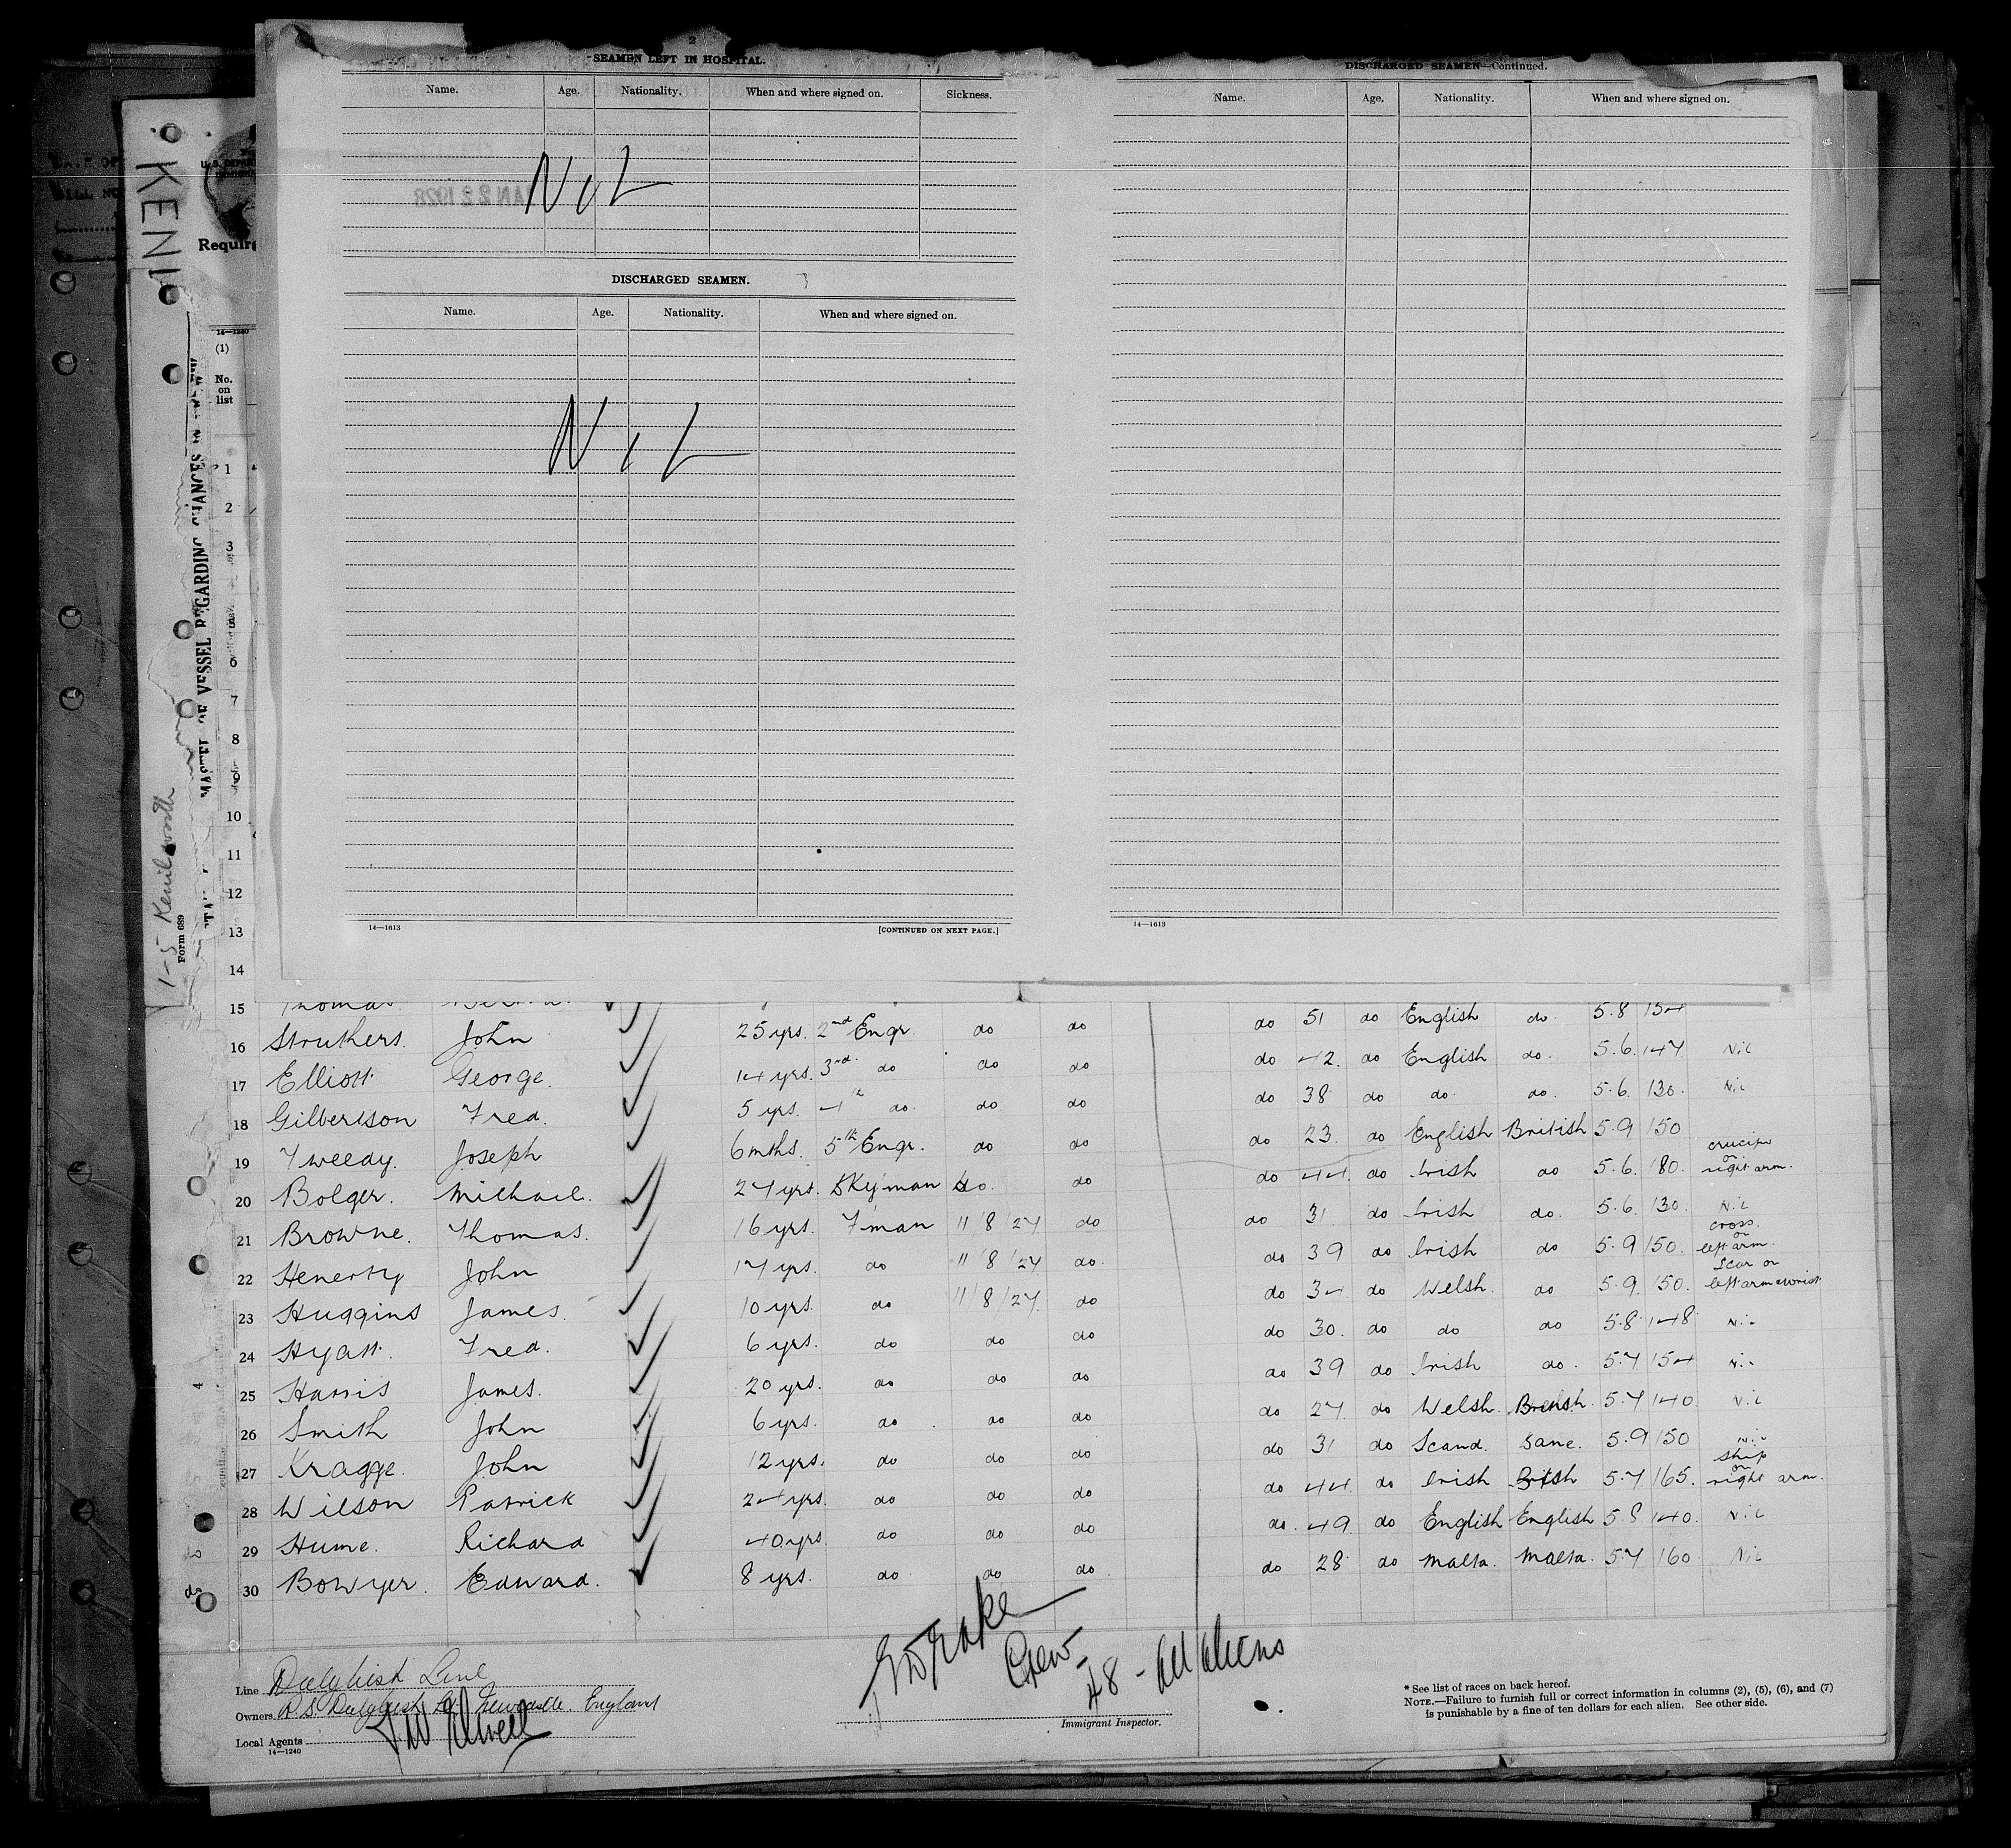 2
SEAMEN LEFT IN HOSPITAL.
Name. Age. Nationality. When and where signed on. Sickness.
Nil
DISCHARGED SEAMEN.
Name. Age. Nationality. When and where signed on.
Nil
14—1613 [CONTINUED ON NEXT PAGE.]
DISCHARGED SEAMEN—Continued.
Name. Age. Nationality. When and where signed on.
14—1613
KENI
Requir
14—1240
(1)
No. on list
OF VESSEL REGARDING CHANGES IN
1-5 Kenilworth
Form 689
1
2
3
5
6
7
8
9
10
11
12
13
14
15 Thomas do 51 do English do 5.8 154
16 Struthers. John 25 yrs. 2nd Engr. do do do 42. do English do. 5.6. 147 Nil
17 Elliott George. 14 yrs. 3rd. do do do do 38 do do. do. 5.6. 130. Nil
18 Gilbertson Fred. 5 yrs. 4th do. do do do 23. do English British 5.9 150
19 Tweedy. Joseph 6 mths. 5th Engr. do do do 44. do Irish do 5.6. 180. crucifix on right arm.
20 Bolger. Michael. 27 yrs. Dkyman do. do do 31 do Irish do. 5.6. 130. Nil
21 Browne. Thomas. 16 yrs. Fman 11/8/27 do do 39 do Irish do 5.9 150. cross. on left arm.
22 Henerty John 17 yrs. do 11/8/27 do. do 34 do Welsh. do 5.9. 150. Scar on left arm & wrist
23 Huggins James. 10 yrs. do 11/8/27. do do 30. do do do 5.8. 148 Nil
24 Hyatt. Fred. 6 yrs. do do do do 39 do Irish do. 5.7. 154 Nil
25 Harris James. 20 yrs. do do do do 27. do Welsh. British. 5.7 140 Nil
26 Smith John 6 yrs. do do do do 31 do Scand. Dane. 5.9 150 Nil
27 Kragge. John 12 yrs. do do do do 44 do Irish British 5.7 165. ship on right arm.
28 Wilson Patrick 24 yrs. do do do do. 49. do English English 5 8 140. Nil
29 Hume. Richard 40 yrs. do do do do 28 do Malta. Malta. 5.7 160 Nil
30 Bowyer. Edward. 8 yrs. do do do.
Crew - 48 - all aliens
Line Dalgliesh Line
Owners R. S. Dalgliesh Ld. Newcastle. England
Local Agents
14—1240
Immigrant Inspector.
* See list of races on back hereof.
NOTE.—Failure to furnish full or correct information in columns (2), (5), (6), and (7)
is punishable by a fine of ten dollars for each alien. See other side.